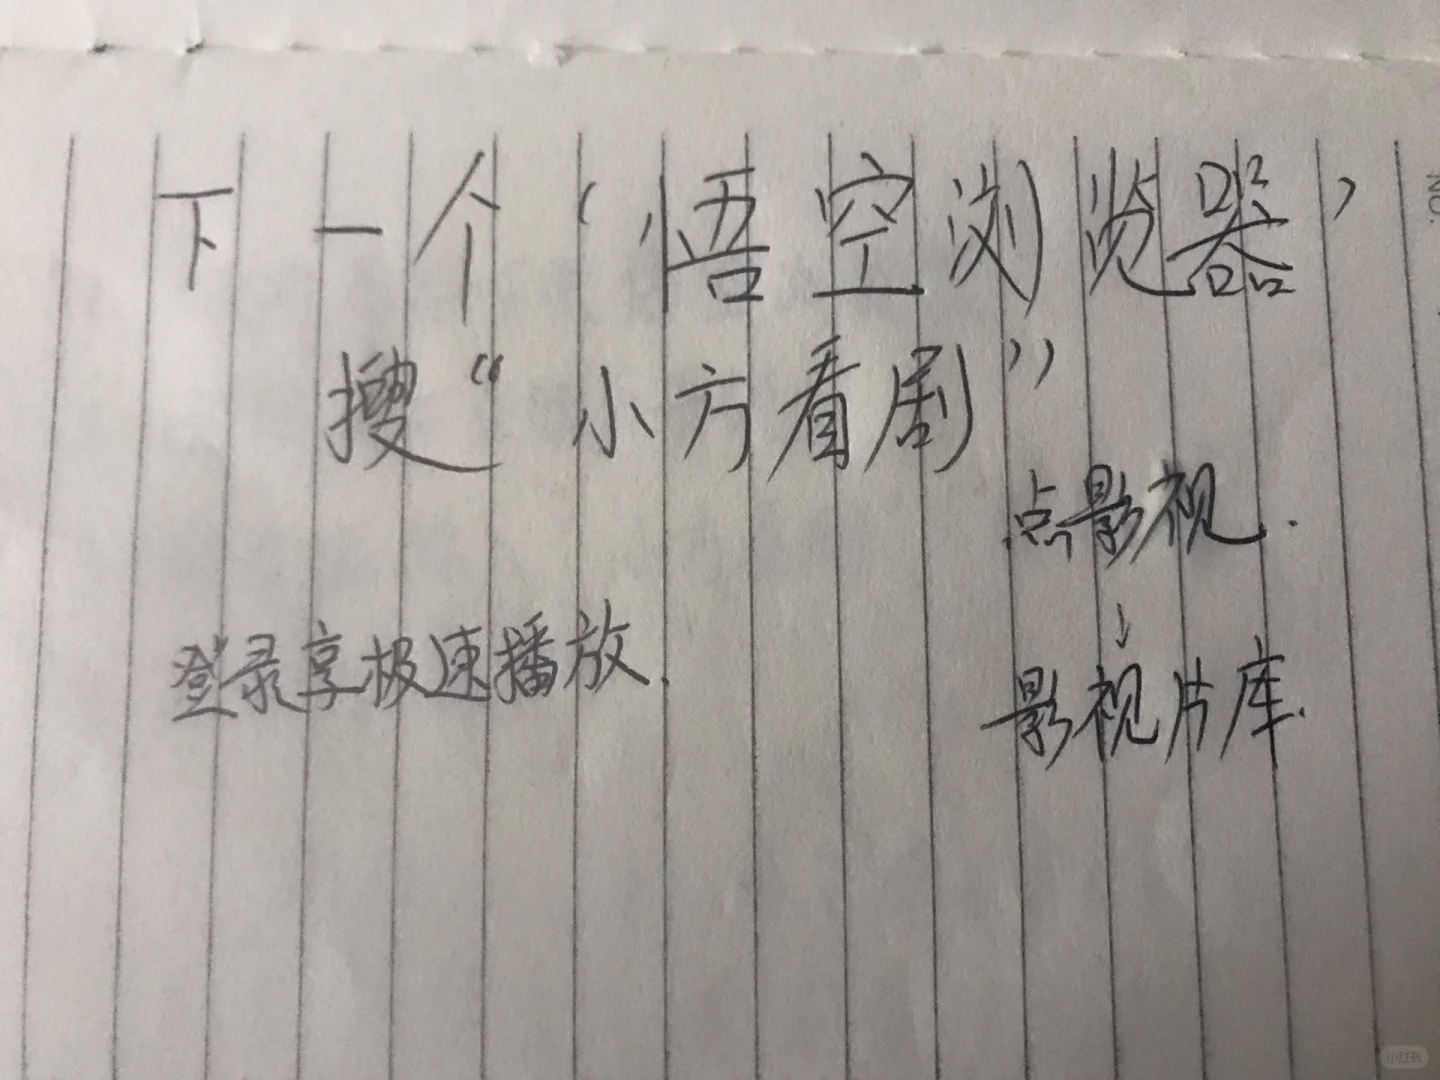 下一个‘悟空浏览器’
搜“小方看剧”
点影视.
↓
登录享极速播放.
影视片库.
NO.
小红书